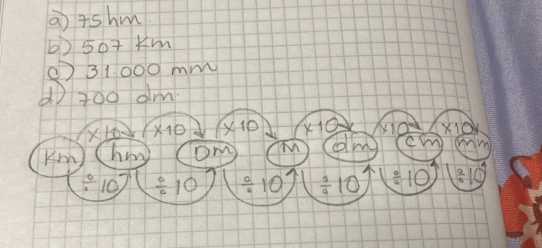 a) 75 hm
b) 507 Km
c) 31.000 mm
d) 700 dm.
x10 x10 x10 x10 x10 x10
Km hm Dm M dm cm mm
÷10 ÷10 ÷10 ÷10 ÷10 ÷10